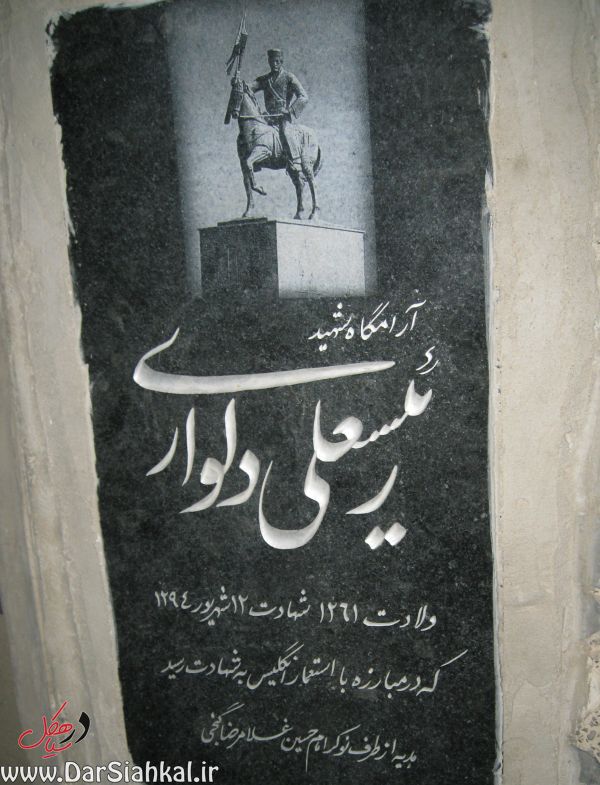 آرامگاه شهید
رئیسعلی دلواری
ولادت ۱۲۶۱ شهادت ۱۲ شهریور ۱۲۹۴
که در مبارزه با استعمار انگلیس به شهادت رسید
هدیه از طرف نوکر امام حسین غلامرضا گنخی
در سیاهکل
www.DarSiahkal.ir